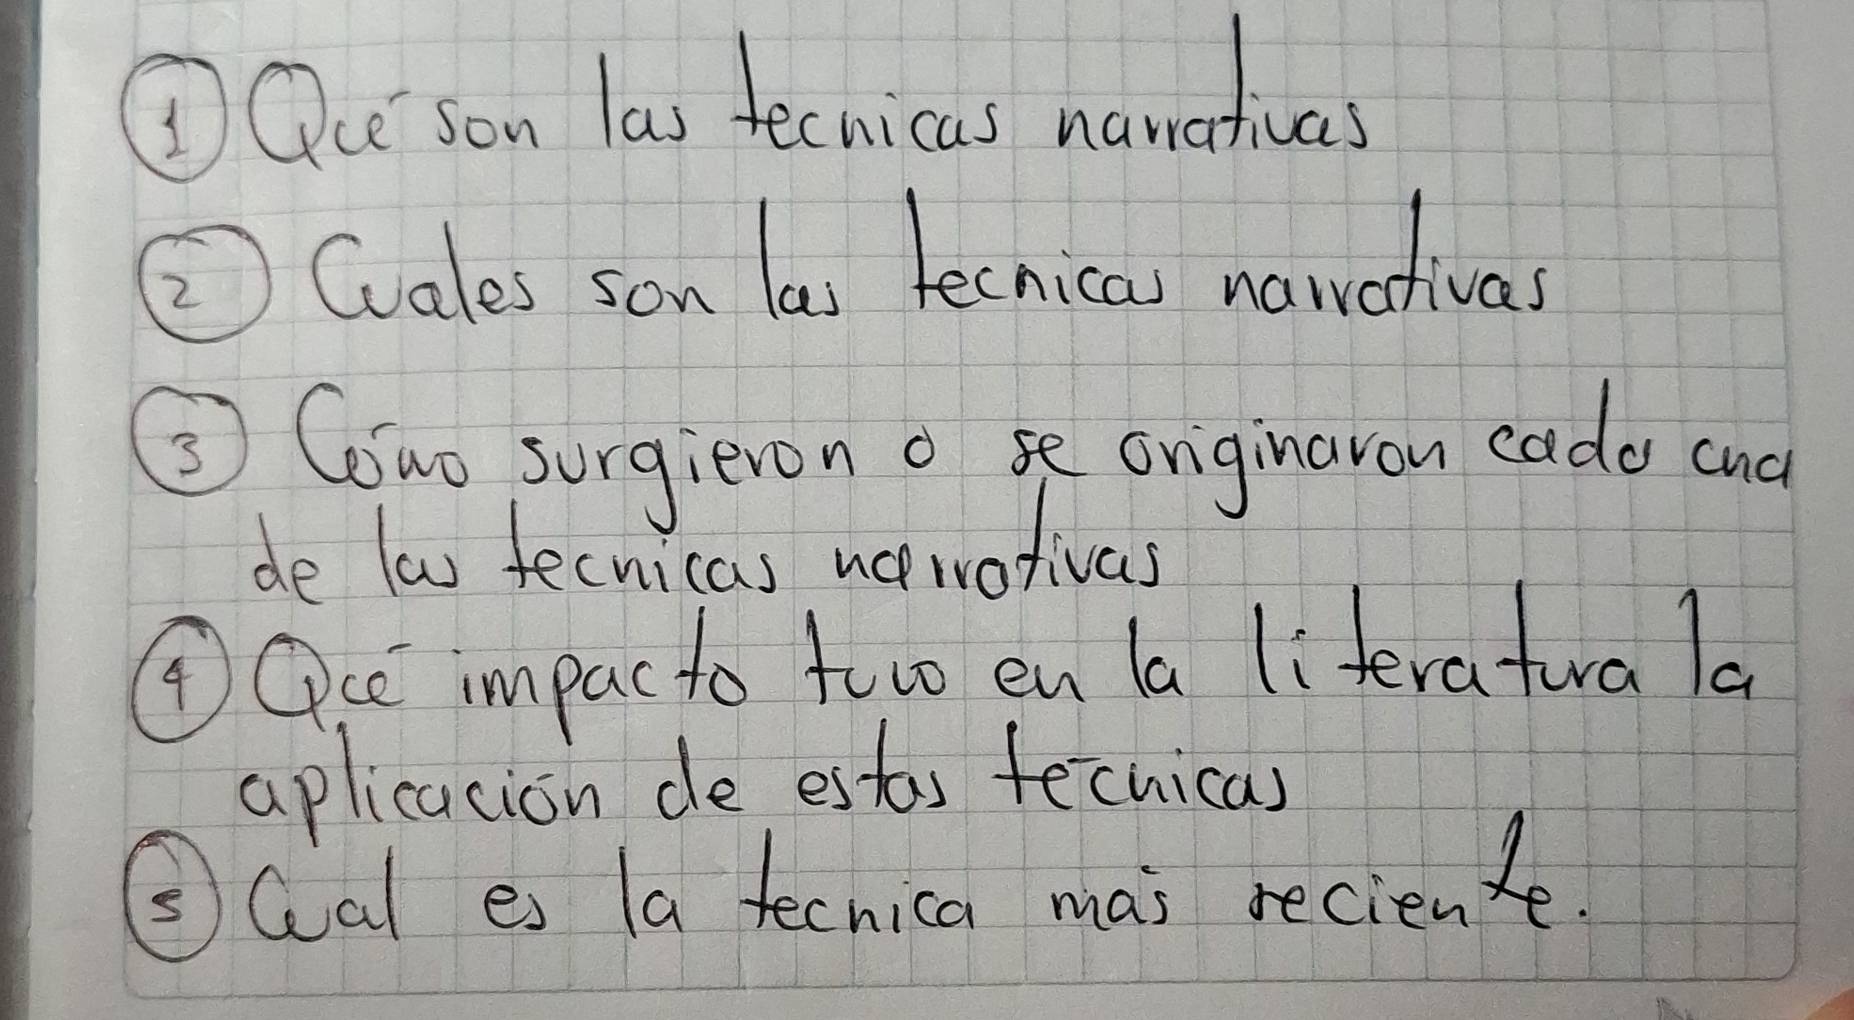 ① Qué son las tecnicas narrativas
② Cuales son las tecnicas narrativas
③ Cómo surgieron o se originaron cada una
de las tecnicas narrativas
④ Qué impacto tuvo en la literatura la
aplicación de estas técnicas
⑤ Cual es la tecnica más reciente.